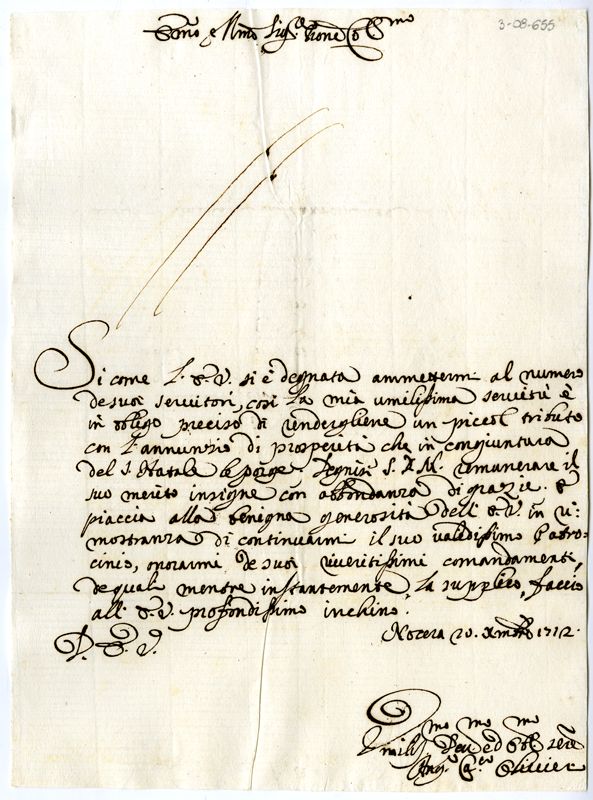 3-08-655
Emo e Rmo Sig.r Prone Colmo
Si come l'E. V. si è degnata ammettermi al numero
de suoi servitori, così la mia umilissima servitù è
in obligo preciso di rendergliene un piccol tributo
con l'annunzio di prosperità che in congiuntura
del S. Natale le porge. Degnisi S. D. M. remunerare il
suo merito insigne con abbondanza di grazie. E
piaccia alla benigna generosità dell'E. V. in ri:
mostranza di continuarmi il suo validissimo Patro-
cinio, onorarmi de suoi riveritissimi comandamenti,
de quali mentre instantemente la supplico, faccio
all'E. V. profondissimo inchino.
Nocera 20. Xmbre 1712.
D. E. V.
Umil.mo Dev.mo ed Obl.mo Sere
Ang. Ca.er Olivier